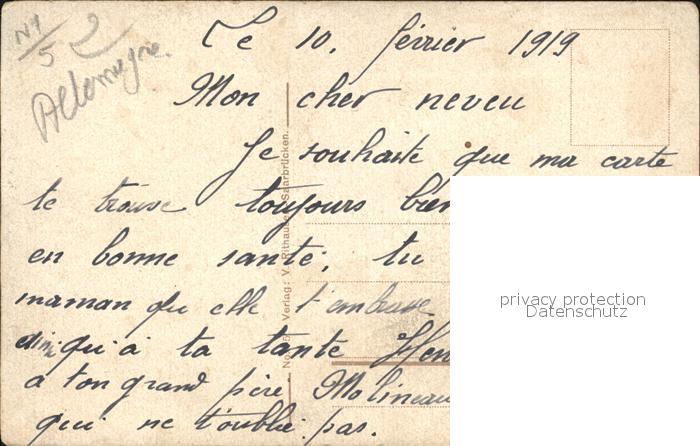 N1/5 2
Allemagne.
Le 10, février 1919
Mon cher neveu
Je souhaite que ma carte
te trouve toujours bien
en bonne santé, tu
maman qu elle t'embrasse
qui a ta tante Hen
a ton grand père Molineau
qui ne t'oublie pas.
Verlag: V. Rithausen Saarbrücken.
privacy protection
Datenschutz